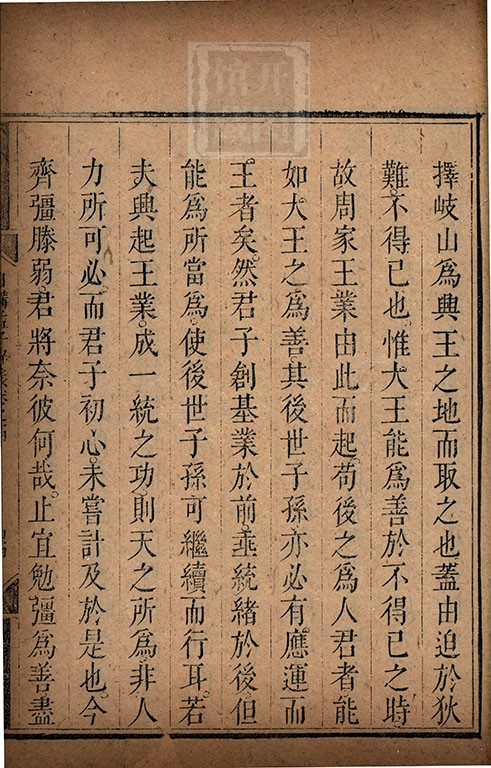 擇岐山爲興王之地而取之也蓋由迫於狄
難不得已也惟大王能爲善於不得已之時
故周家王業由此而起苟後之爲人君者能
如大王之爲善其後世子孫亦必有應運而
王者矣然君子創基業於前垂統緒於後但
能爲所當爲使後世子孫可繼續而行耳若
夫興起王業成一統之功則天之所爲非人
力所可必而君子初心未嘗計及於是也今
齊彊滕弱君將奈彼何哉止宜勉彊爲善盡